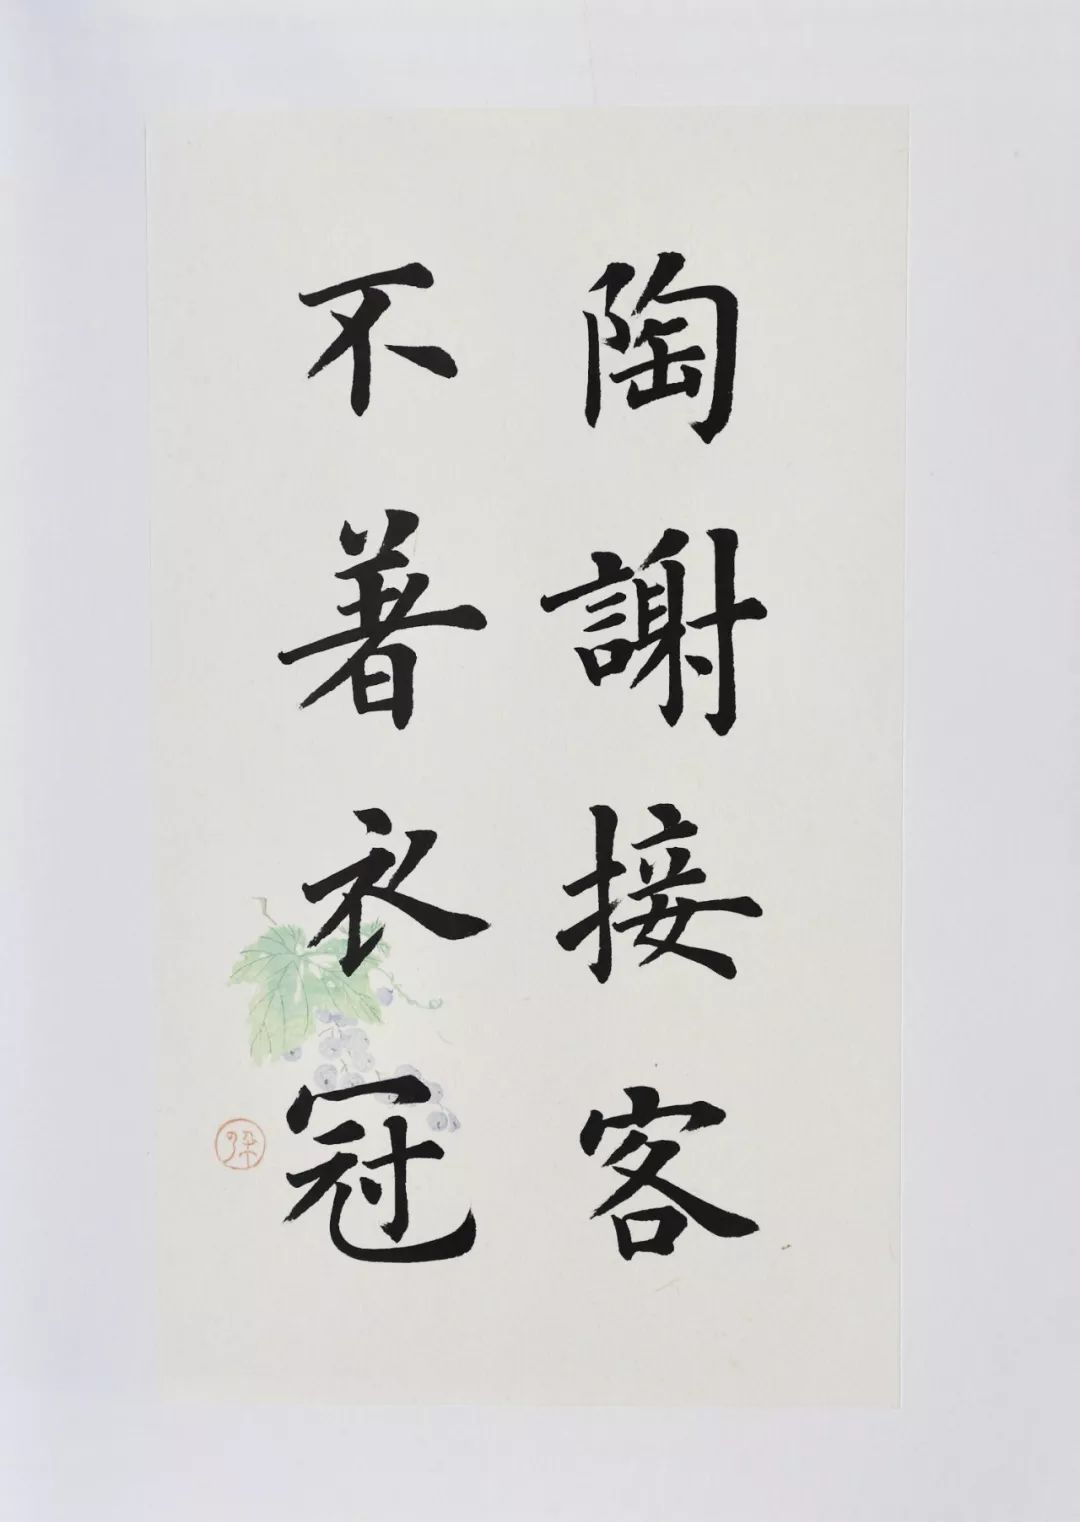 陶謝接客
不著衣冠